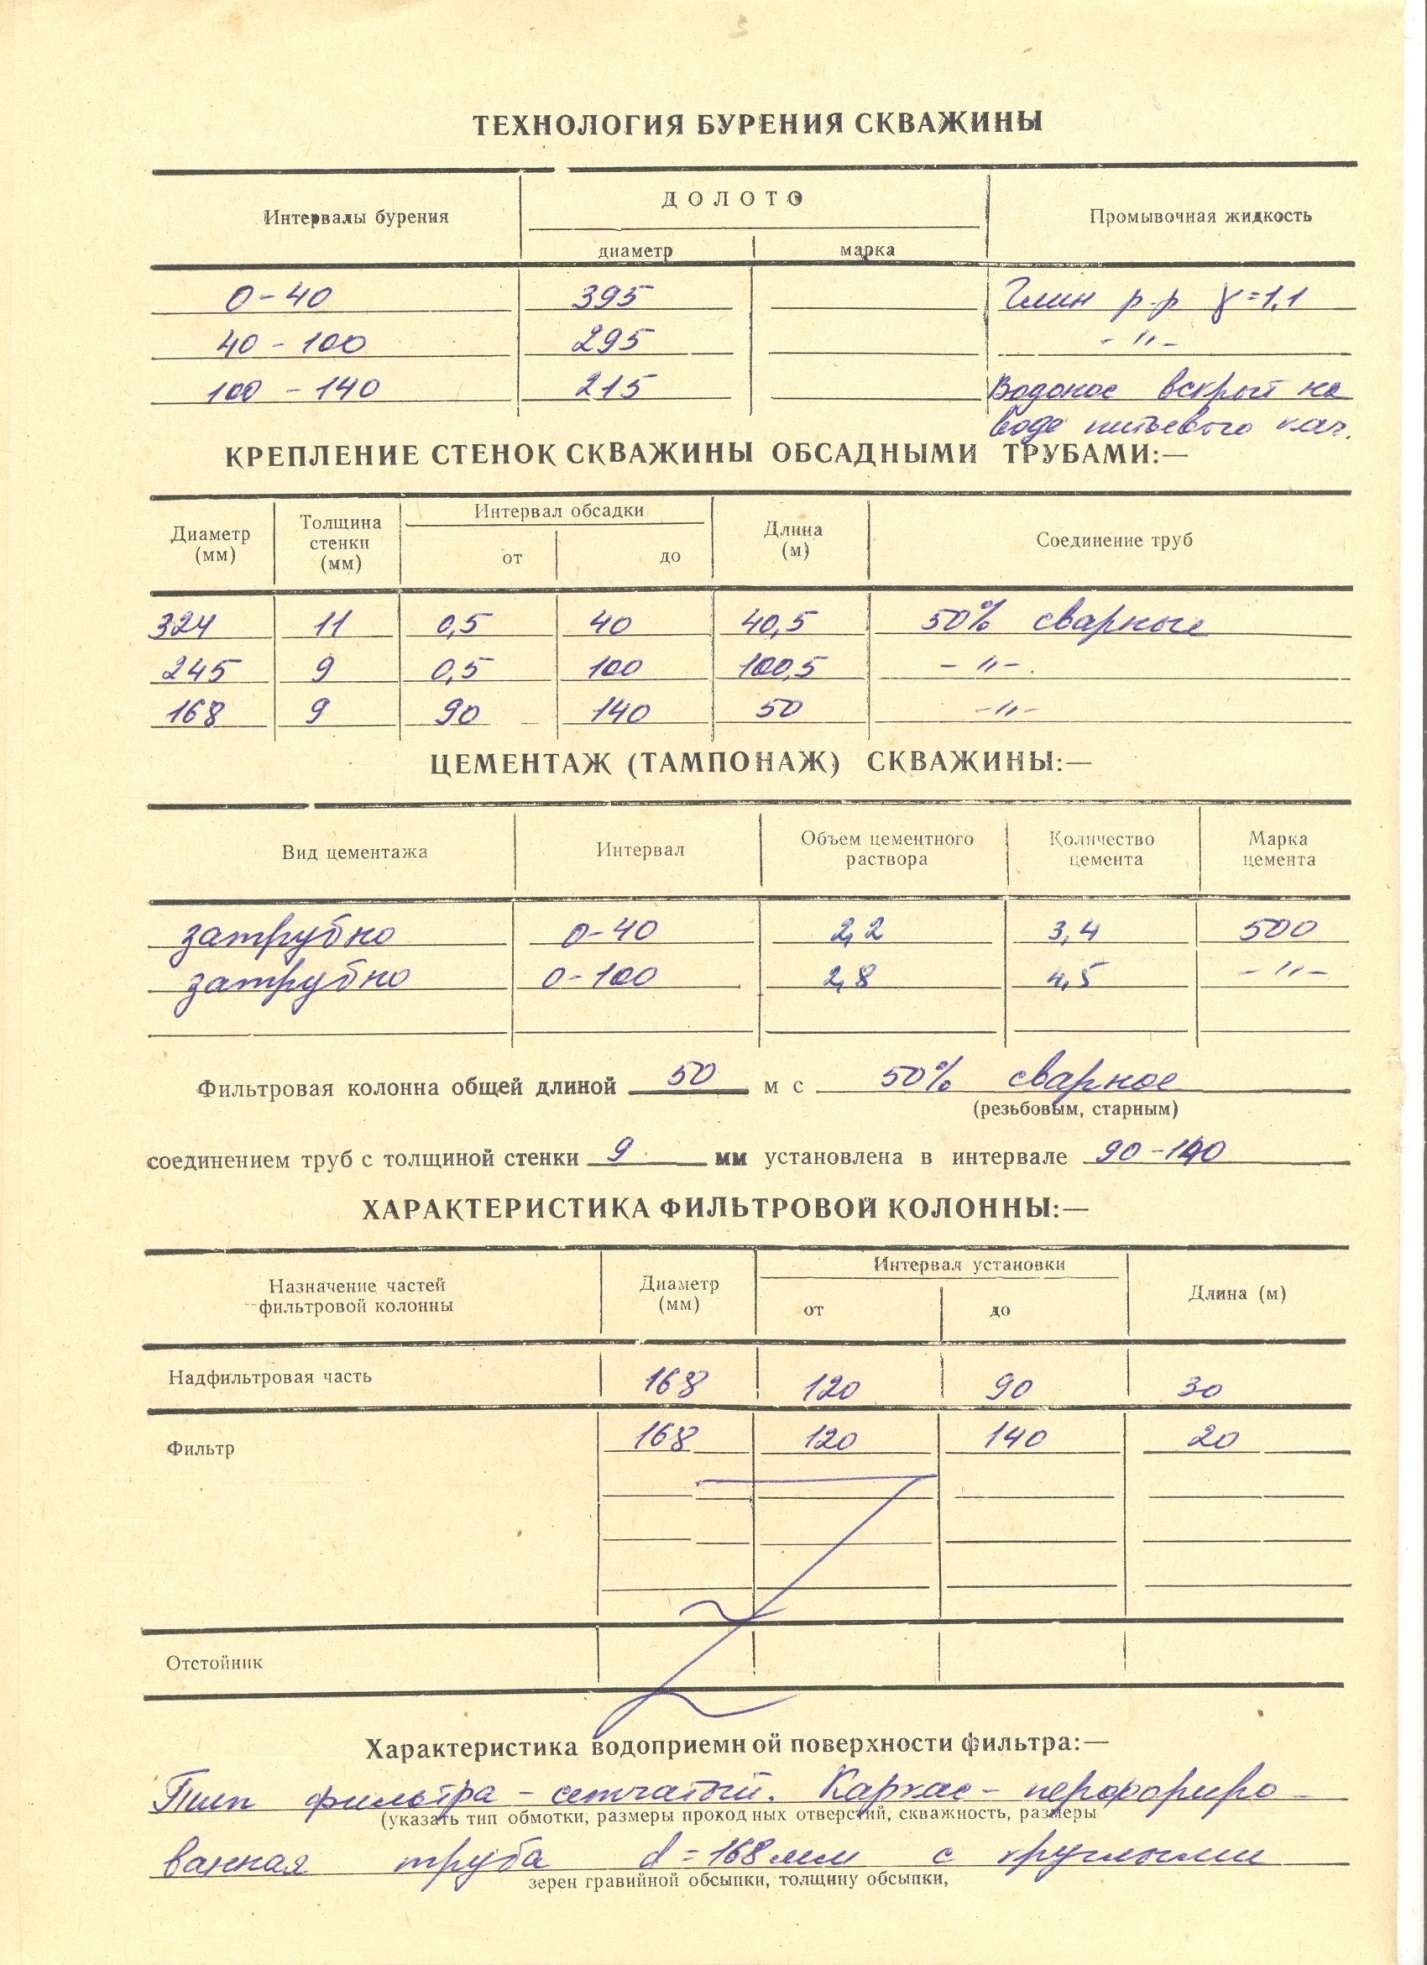 ТЕХНОЛОГИЯ БУРЕНИЯ СКВАЖИНЫ
Интервалы бурения ДОЛОТО Промывочная жидкость
диаметр марка
0-40 395 Глин р-р γ=1,1
40-100 295 -"-
100-140 215 Водонос вскрыт на
воде питьевого кач.
КРЕПЛЕНИЕ СТЕНОК СКВАЖИНЫ ОБСАДНЫМИ ТРУБАМИ:—
Диаметр (мм) Толщина стенки (мм) Интервал обсадки Длина (м) Соединение труб
от до
324 11 0,5 40 40,5 50% сварные
245 9 0,5 100 100,5 -"-
168 9 90 140 50 -"-
ЦЕМЕНТАЖ (ТАМПОНАЖ) СКВАЖИНЫ:—
Вид цементажа Интервал Объем цементного раствора Количество цемента Марка цемента
затрубно 0-40 2,2 3,4 500
затрубно 0-100 2,8 4,5 -"-
Фильтровая колонна общей длиной 50 м с 50% сварное
(резьбовым, старным)
соединением труб с толщиной стенки 9 мм установлена в интервале 90-140
ХАРАКТЕРИСТИКА ФИЛЬТРОВОЙ КОЛОННЫ:—
Назначение частей фильтровой колонны Диаметр (мм) Интервал установки Длина (м)
от до
Надфильтровая часть 168 120 90 30
Фильтр 168 120 140 20
Отстойник
Характеристика водоприемной поверхности фильтра:—
Тип фильтра - сетчатый. Каркас - перфориро-
(указать тип обмотки, размеры проходных отверстий, скважность, размеры
ванная труба d=168мм с круглыми
зерен гравийной обсыпки, толщину обсыпки,